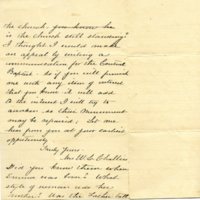 the church, you know him
is the church still standing?
I thought I would make
an appeal by writing a
communication for the Central
Baptist. So if you will furnish
me with any item of interest
that you know it will add
to the interest I will try to
awaken so that Monument
may be repaired; Let me
hear from you at your earliest
opportunity
Truly Yours
Mrs W. C.
Did you know them when
Emma was born? What
style of woman was her
Mother? Was the Father tall